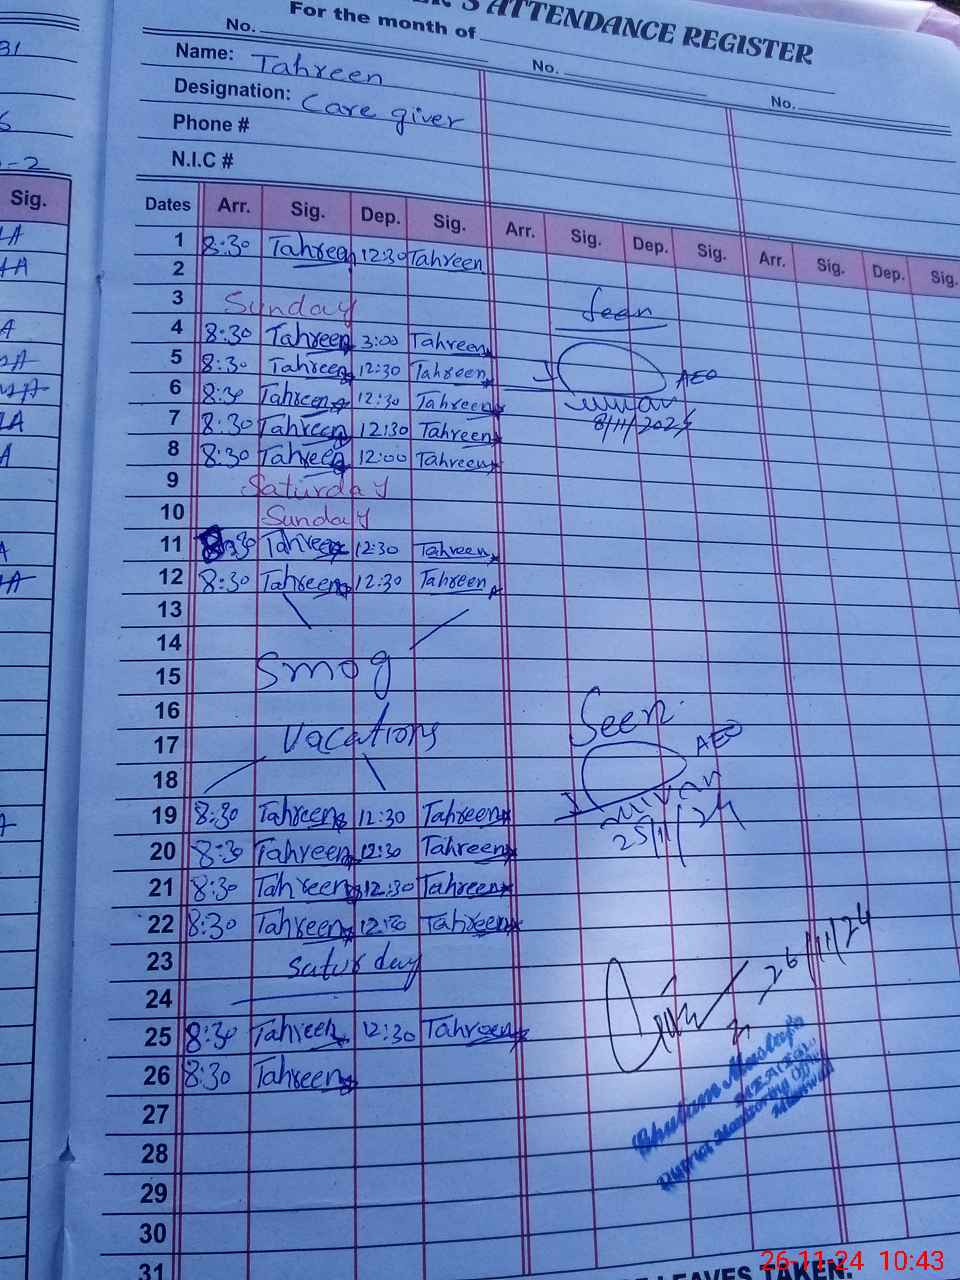 'S ATTENDANCE REGISTER
For the month of
No. No. No.
Name: Tahreen
Designation: Care giver
Phone #
N.I.C #
Sig. Dates Arr. Sig. Dep. Sig. Arr. Sig. Dep. Sig. Arr. Sig. Dep. Sig.
1 8:30 Tahreen 12:30 Tahreen
2
3 Sunday Seen
4 8:30 Tahreen 3:00 Tahreen
5 8:30 Tahreen 12:30 Tahreen AEO
6 8:30 Tahreen 12:30 Tahreen
7 8:30 Tahreen 12:30 Tahreen 8/11/2024
8 8:30 Tahreen 12:00 Tahreen
9 Saturday
10 Sunday
11 8:30 Tahreen 12:30 Tahreen
12 8:30 Tahreen 12:30 Tahreen
13
14
15 Smog
16 Seen
17 vacations AEO
18
19 8:30 Tahreen 12:30 Tahreen
20 8:30 Tahreen 12:30 Tahreen 25/11/24
21 8:30 Tahreen 12:30 Tahreen
22 8:30 Tahreen Tahreen
23 Saturday 26/11/24
24
25 8:30 Tahreen 12:30 Tahreen
26 8:30 Tahreen
27 District Monitoring
28
29
30
31
LEAVES TAKEN.
26-11-24 10:43